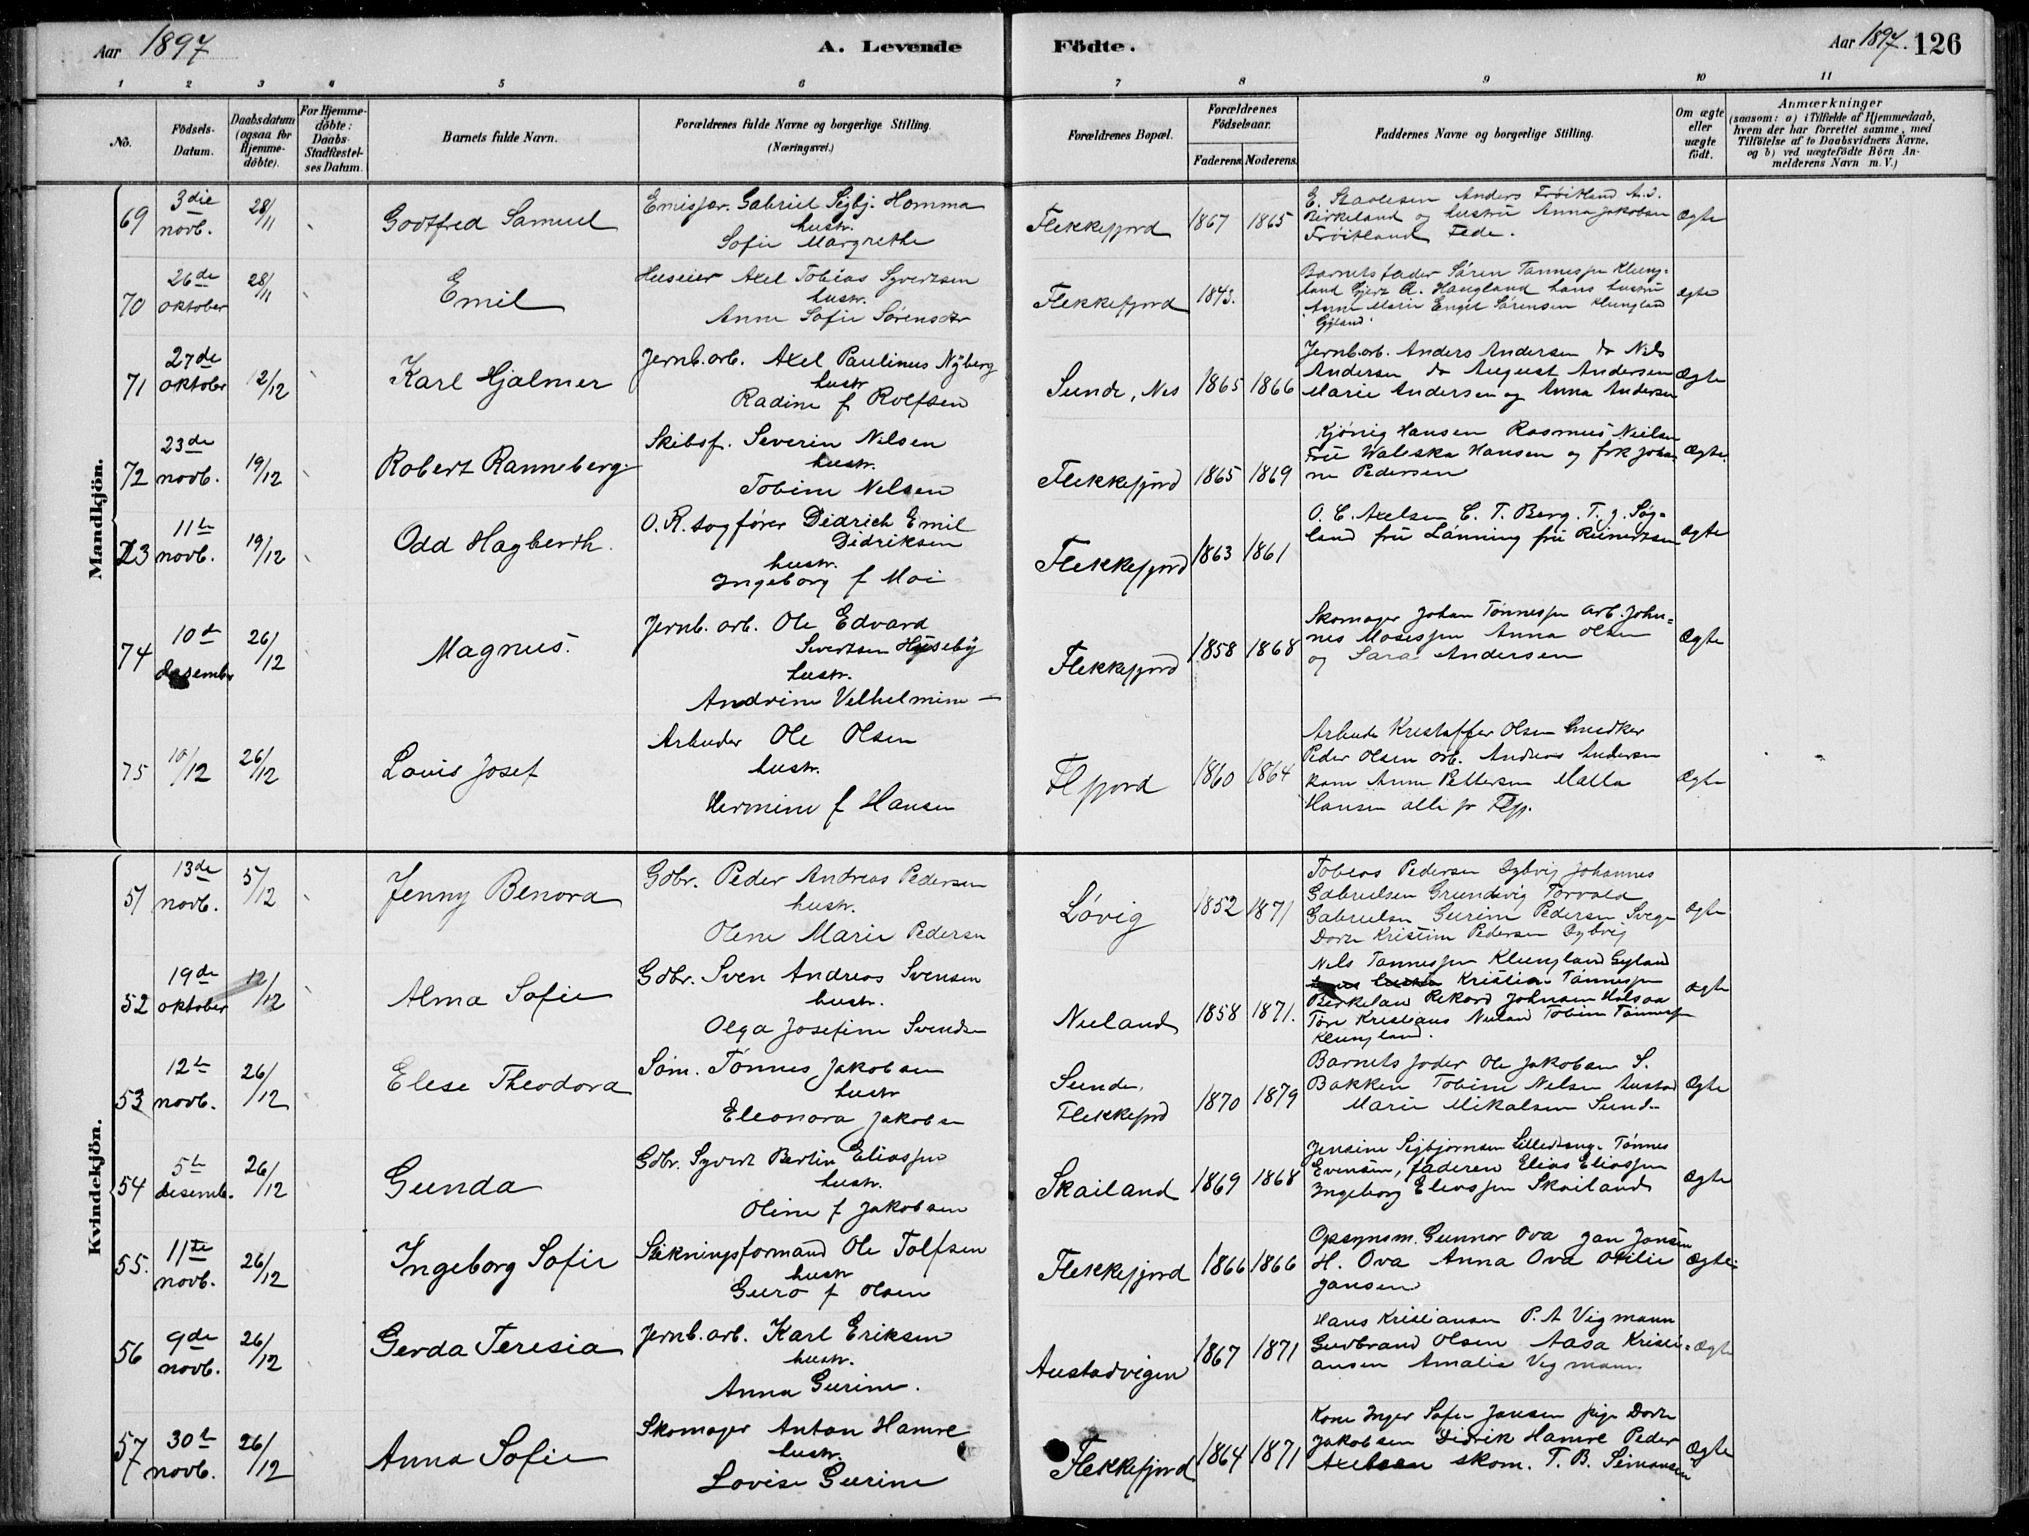 Aar 1897
A. Levende
Födte.
Aar 1897. 126
1 2 3 4 5 6 7 8 9 10 11
No.
Födsels-Datum.
Daabsdatum (ogsaa for Hjemme-döbte).
For Hjemme-döbte: Daabs-Stadfæstel-ses Datum.
Barnets fulde Navn.
Forældrenes fulde Navne og borgerlige Stilling.
(Næringsvei.)
Forældrenes Bopæl.
Forældrenes Födselsaar.
Faderens. Moderens.
Faddernes Navne og borgerlige Stilling.
Om ægte eller uægte födt.
Anmærkninger
(saasom: a) i Tilfælde af Hjemmedaab,
hvem der har forrettet samme, med
Tilföielse af to Daabsvidners Navne,
og b) ved uægtefödte Börn An-
melderens Navn m. V.)
Mandkjön.
69 3die novb. 28/11 Godtfred Samuel
Emissær. Gabriel Sigbj. Homma
hustr.
Sofie Margrethe
Flekkefjord 1867 1865
E. Staalesen Anders Frøitland A. J.
Birkeland og hustru Anna Jakobsen
Frøitland Fede.
Ægte
70 26de oktober 28/11 Emil
Huseier Axel Tobias Syvertsen
hustr.
Anne Sofie Sørensdtr
Flekkefjord 1843.
Barnets fader Søren Tønnesen Klung-
land Gjert R. Haugland hans hustru
Anne Marie Engel Sørensen Klungland
Gyland
Ægte
71 27de oktobr 12/12 Karl Hjalmer
Jernb.arb. Axel Paulinus Nÿberg
hustr
Radine f Rolfsen
Sunde, Nes 1865 1866
Jernb.arb. Anders Andersen do Nils
Andersen do August Andersen
Marie Andersen og Anna Andersen
Ægte
72 23de novb. 19/12 Robert Ranneberg.
Skibsf. Severin Nilsen
hustr.
Tobine Nilsen
Flekkefjord 1865 1869
Kjönig Hansen Rasmus Neilsen
Fru Waleska Hansen og frk Joha-
ne Pedersen
Ægte.
73 11te novb. 19/12 Odd Hagberth.
O. R. sagfører Didrich Emil
Didriksen
hustr.
Ingeborg f Moi
Flekkefjord 1863 1861
O. C. Axelsen C. T. Berg. T. J. Søy-
land fru Lánning fru Reinertsen
Ægte
74 10de desembr 26/12 Magnus.
Jernb. arb. Ole Edvard
Sivertsen Huseby
hustr.
Andrine Velhelmine —
Flekkefjord 1858 1868
Skomager Johan Tönnesen Arb. Johan-
nes Mosesen Anna Olsen
og Sara Andersen
Ægte
75 10/12 26/12 Lovis Josef
Arbeider Ole Olsen
hustr.
Hermine f Hansen
Flfjord 1860 1864
Arbeide Kristoffer Olsen Snedker
Peder Olsen arb. Andreas Andersen
kone Anne Pettersen Malla
Hansen alle fr Flfj.
Ægte
Kvindekjön.
51 13de novb. 5/12 Jenny Benora
Gdbr. Peder Andreas Pedersen
hustr.
Oline Marie Pedersen
Lóvig 1852 1871
Tobias Pedersen Dybvig Johannes
Gabrielsen Grundvig Torvald
Gabrielsen Gurine Pedersen Svege
Dorte Kristine Pedersen Dybvig
Ægte
52 19de oktober 12/12 Alma Sofie
Gdbr. Sven Andreas Svensen
hustr.
Olga Josefine Svendsen
Nuland 1858 1871.
Nils Tønnesen Klungland Gyland
Kristian Tønnesen
Berkeland Rekard Johnsen Holsaa
Tøre Kristians Nuland Tobine Tønnesen
Klungland.
Ægte
53 12te novb. 26/12 Elese Theodora
Søm. Tønnes Jakobsen
hustr
Eleonora Jakobsen
Sunde, Flekkefjord 1870 1879
Barnets fader Ole Jakobsen S.
Bakken Tobine Nelsen Austad
Marie Mikalsen Sunde
Ægte
54 5te desemb. 26/12 Gunda
Gdbr. Syvert Bertin Eliassen
hustr.
Oline f Jakobsen
Skailand 1869 1868
Jensine Sigbjørnsen Tönnes
Evensen, faderen Elias Eliassen
Ingeborg Eliassen Skailand
Ægte
55. 11te novb. 26/12 Ingeborg Sofie
Stikningsformand Ole Tolfsen
hustr
Guro f Olsen
Flekkefjord 1866 1866
Opsynsm. Gunnar Ova Jan Jansen
H. Ova Anna Ova Otilie
Jansen
Ægte
56 9de novb. 26/12 Gerda Teresia
Jernb. arb. Karl Eriksen
hustr.
Anna Gurine.
Austadvigen 1867 1871
Hans Kristiansen P. A Vigmann
Gudbrand Olsen Aasa Kristi-
ansen Amalia Vigmann
Ægte
57 30te novb. 26/12 Anna Sofie
Skomager Anton Hamre
hustr.
Lovise Gurine
Flekkefjord 1864 1871
Kone Inger Sofie Jansen pige Dorte
Jakobsen Didrik Hamre Peder
Axelsen skom. T. B. Simonsen
Ægte